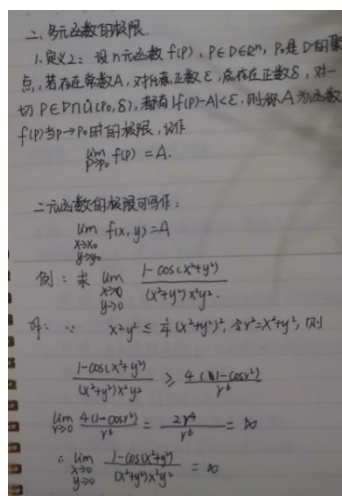 二、多元函数的极限.
1.定义2：设n元函数f(P), P∈D⊂Rⁿ, P₀是D的聚
点,若存在常数A,对任意正数ε,总存在正数δ,对一
切P∈D∩Ů(P₀,δ),都有|f(P)-A|<ε.则称A为函数
f(P)当P→P₀时的极限,记作
lim f(P)=A.
P→P₀
二元函数的极限可写作：
lim f(x,y)=A
x→x₀
y→y₀
例：求 lim (1-cos(x²+y²))/((x²+y²)x²y²).
x→0
y→0
解：∵ x²y² ≤ 1/4(x²+y²)², 令r²=x²+y², 则
(1-cos(x²+y²))/((x²+y²)x²y²) ≥ 4(1-cosr²)/r⁶
lim 4(1-cosr²)/r⁶ = 2r⁴/r⁶ = ∞
r→0
∴ lim (1-cos(x²+y²))/((x²+y²)x²y²) = ∞
x→0
y→0